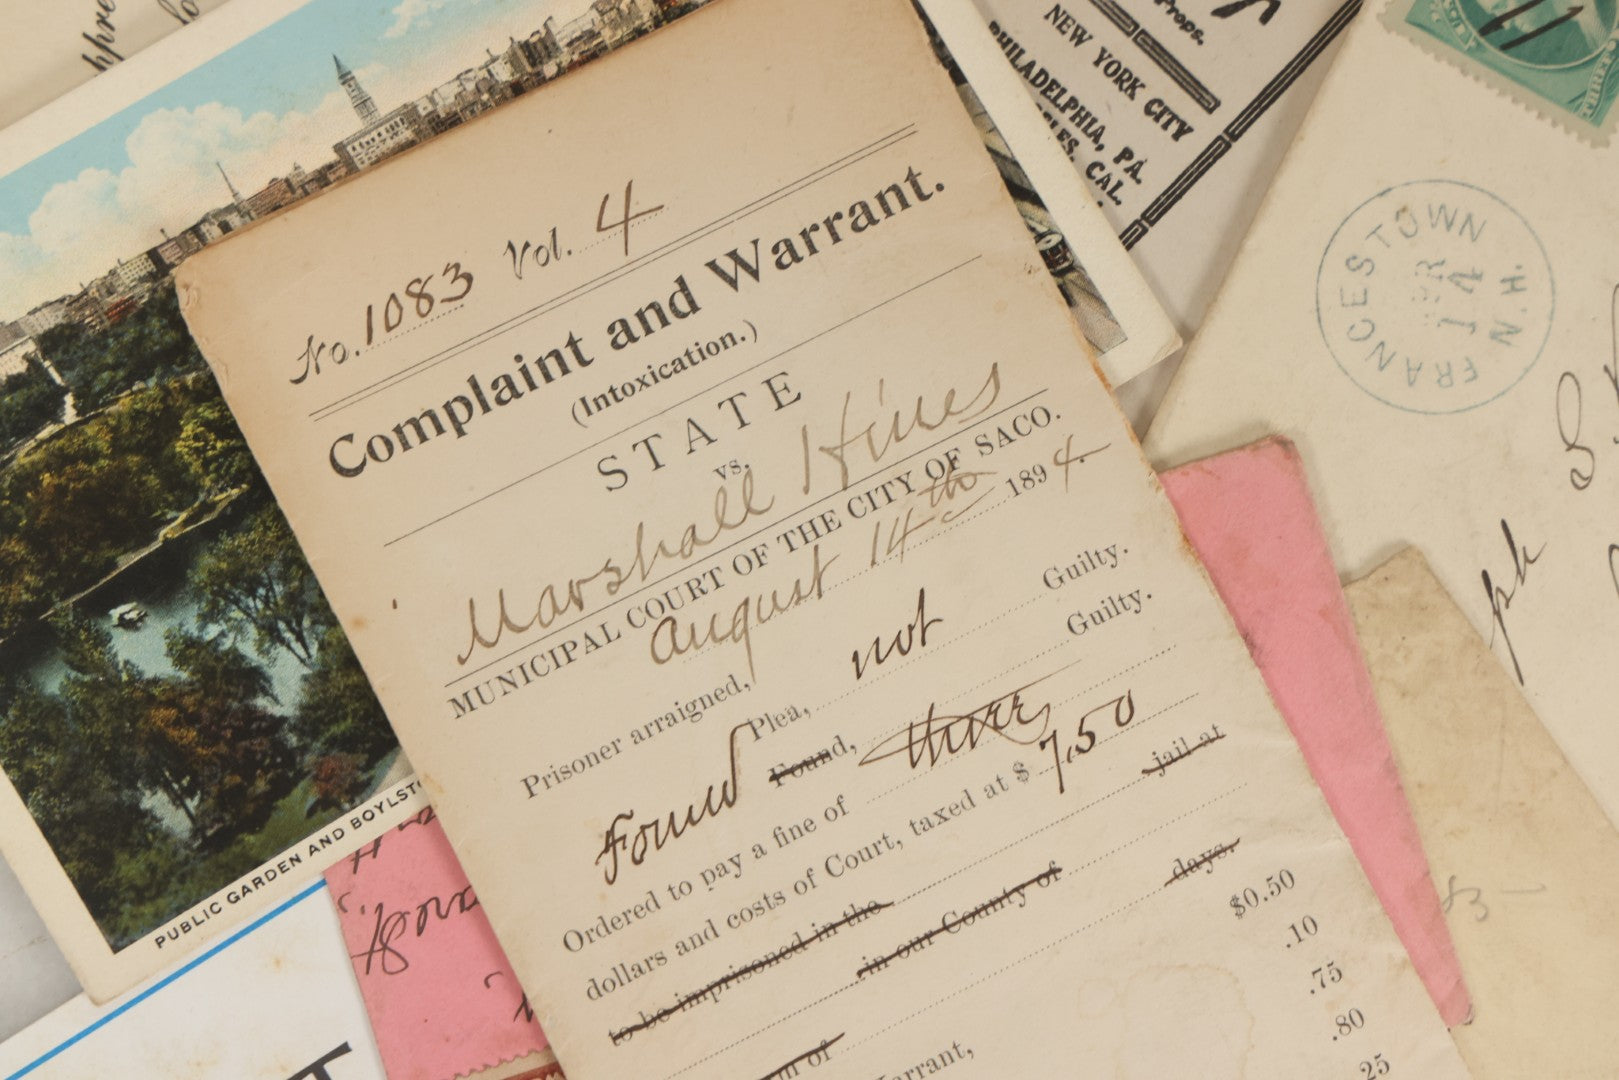 Props.
NEW YORK CITY
PHILADELPHIA, PA.
CAL.
FRANCESTOWN
N.H.
APR
14
11
No. 1083 Vol. 4
Complaint and Warrant.
(Intoxication.)
STATE
vs.
Marshall Hines
MUNICIPAL COURT OF THE CITY OF SACO.
August 14th 1894.
Prisoner arraigned,
Plea, not Guilty.
Found Found, Guilty.
Ordered to pay a fine of three
dollars and costs of Court, taxed at $ 7.50
to be imprisoned in the jail at
in our County of days.
$0.50
.10
.75
.80
.25
of
Warrant,
PUBLIC GARDEN AND BOYLST
ph
83